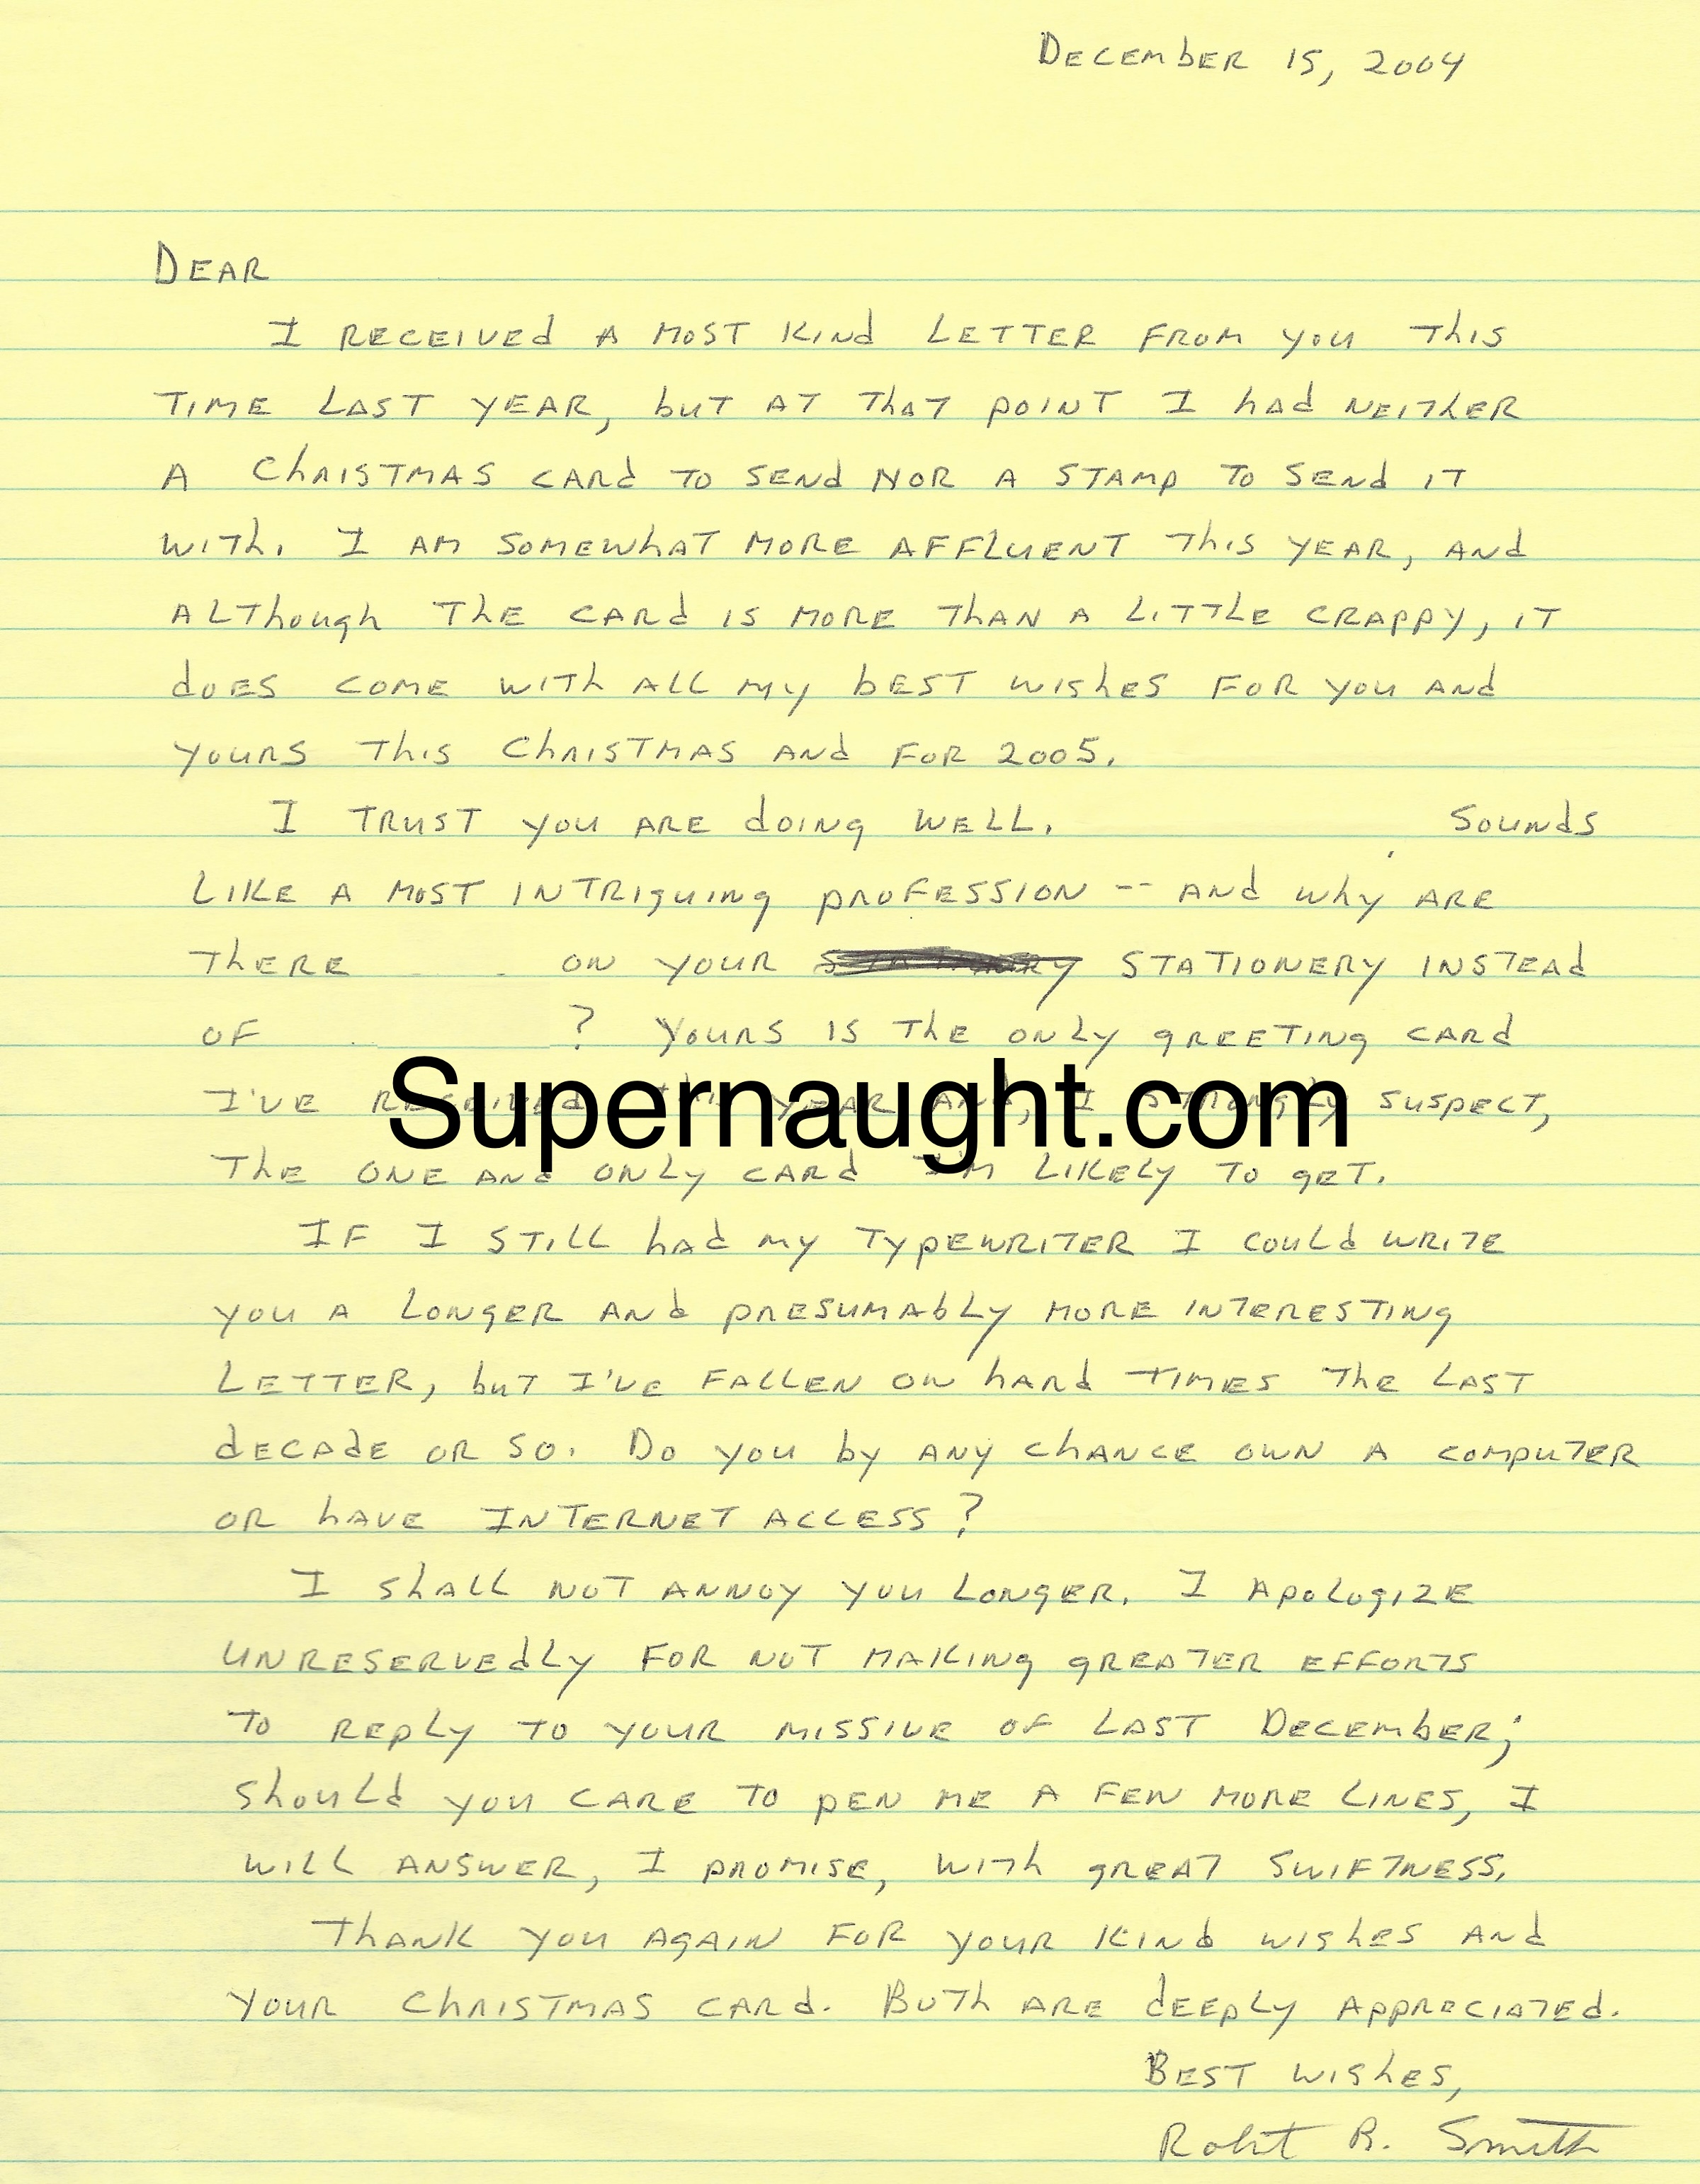 December 15, 2004
Dear
I received a most kind letter from you this
time last year, but at that point I had neither
a Christmas card to send nor a stamp to send it
with. I am somewhat more affluent this year, and
although the card is more than a little crappy, it
does come with all my best wishes for you and
yours this Christmas and for 2005.
I trust you are doing well. Sounds
like a most intriguing profession -- and why are
there on your stationery instead
of ? Yours is the only greeting card
I've received this year and, I strongly suspect,
Supernaught.com
the one and only card I'm likely to get.
If I still had my typewriter I could write
you a longer and presumably more interesting
letter, but I've fallen on hard times the last
decade or so. Do you by any chance own a computer
or have Internet access?
I shall not annoy you longer. I apologize
unreservedly for not making greater efforts
to reply to your missive of last December;
should you care to pen me a few more lines, I
will answer, I promise, with great swiftness.
Thank you again for your kind wishes and
your Christmas card. Both are deeply appreciated.
Best wishes,
Robt R. Smith